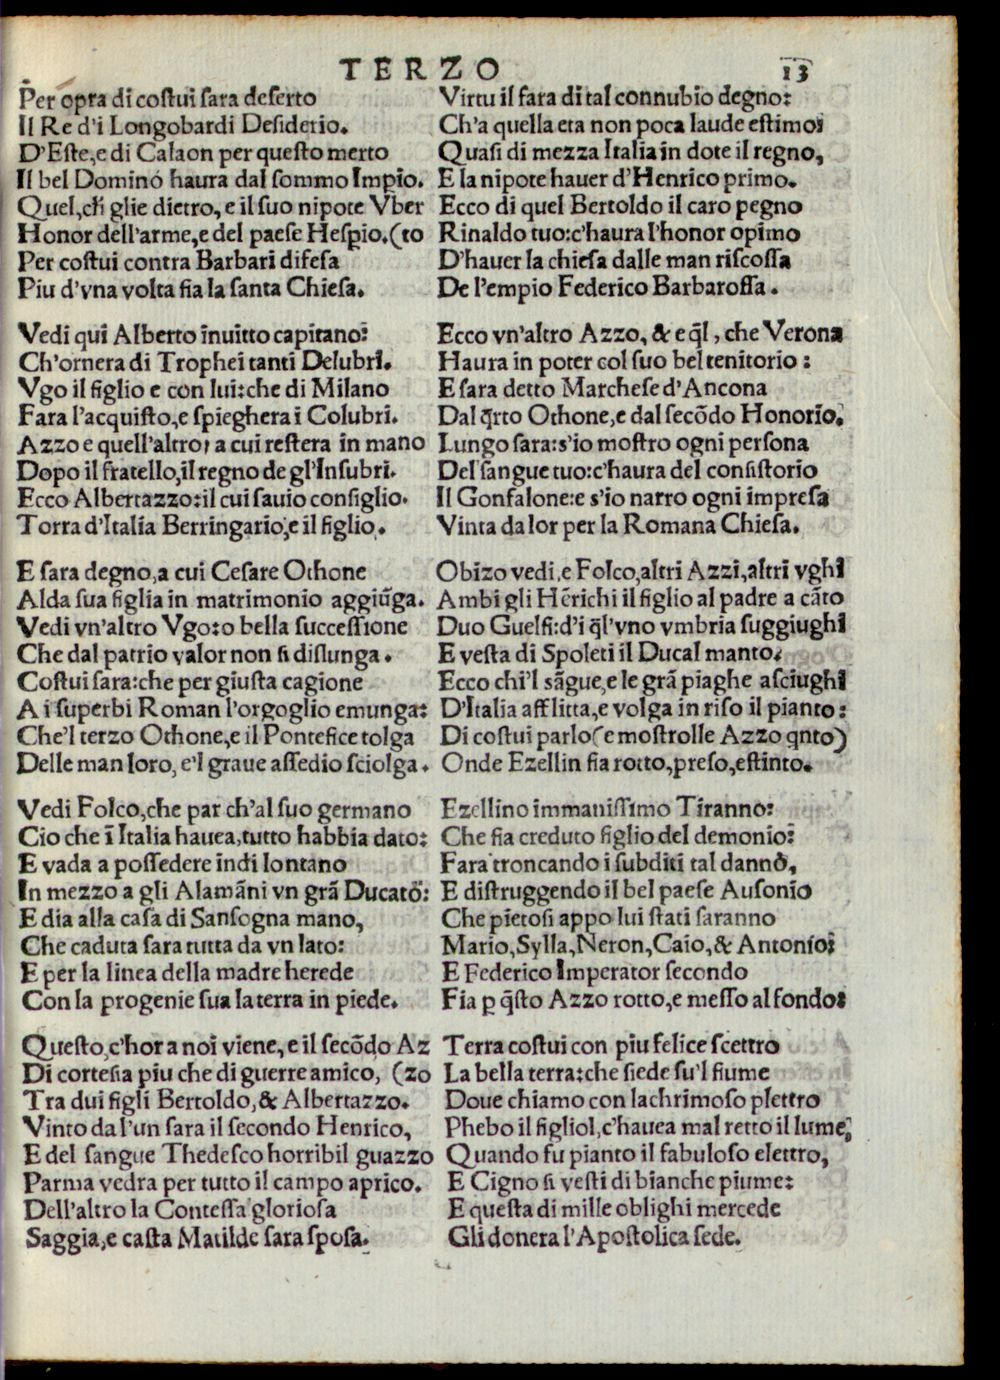 TERZO
13
Per opra di costui sara deserto
Il Re d'i Longobardi Desiderio.
D'Este,e di Calaon per questo merto
Il bel Domino haura dal sommo Impio.
Quel,ch̃ glie dietro, e il suo nipote Vber
Honor dell'arme,e del paese Hespio.(to
Per costui contra Barbari difesa
Piu d'vna volta fia la santa Chiesa.
Vedi qui Alberto inuitto capitano:
Ch'ornera di Trophei tanti Delubri.
Vgo il figlio e con lui:che di Milano
Fara l'acquisto,e spieghera i Colubri.
Azzo e quell'altro, a cui restera in mano
Dopo il fratello,il regno de gl'Insubri.
Ecco Albertazzo:il cui sauio consiglio.
Torra d'Italia Berringario,e il figlio.
E sara degno,a cui Cesare Othone
Alda sua figlia in matrimonio aggiũga.
Vedi vn'altro Vgo:o bella successione
Che dal patrio valor non si dislunga.
Costui sara:che per giusta cagione
A i superbi Roman l'orgoglio emunga:
Che'l terzo Othone,e il Pontefice tolga
Delle man loro, e'l graue assedio sciolga.
Vedi Folco,che par ch'al suo germano
Cio che ĩ Italia hauea,tutto habbia dato:
E vada a possedere indi lontano
In mezzo a gli Alamãni vn grã Ducato:
E dia alla casa di Sansogna mano,
Che caduta sara tutta da vn lato:
E per la linea della madre herede
Con la progenie sua la terra in piede.
Questo,c'hor a noi viene, e il secõdo Az
Di cortesia piu che di guerre amico, (zo
Tra dui figli Bertoldo,& Albertazzo.
Vinto da l'un sara il secondo Henrico,
E del sangue Thedesco horribil guazzo
Parma vedra per tutto il campo aprico.
Dell'altro la Contessa gloriosa
Saggia,e casta Matilde sara sposa.
Virtu il fara di tal connubio degno:
Ch'a quella eta non poca laude estimo:
Quasi di mezza Italia in dote il regno,
E la nipote hauer d'Henrico primo.
Ecco di quel Bertoldo il caro pegno
Rinaldo tuo:c'haura l'honor opimo
D'hauer la chiesa dalle man riscossa
De l'empio Federico Barbarossa.
Ecco vn'altro Azzo, & e q̃l, che Verona
Haura in poter col suo bel tenitorio:
E sara detto Marchese d'Ancona
Dal q̃rto Othone,e dal secõdo Honorio.
Lungo sara:s'io mostro ogni persona
Del sangue tuo:c'haura del consistorio
Il Gonfalone:e s'io narro ogni impresa
Vinta da lor per la Romana Chiesa.
Obizo vedi,e Folco,altri Azzi,altri vghi
Ambi gli Hẽrichi il figlio al padre a cãto
Duo Guelfi:d'i q̃l'vno vmbria suggiughi
E vesta di Spoleti il Ducal manto.
Ecco chi'l sãgue,e le grã piaghe asciughi
D'Italia afflitta,e volga in riso il pianto:
Di costui parlo(e mostrolle Azzo qnto)
Onde Ezellin fia rotto,preso,estinto.
Ezellino immanissimo Tiranno:
Che fia creduto figlio del demonio:
Fara troncando i subditi tal danno,
E distruggendo il bel paese Ausonio
Che pietosi appo lui stati saranno
Mario,Sylla,Neron,Caio,& Antonio:
E Federico Imperator secondo
Fia p q̃sto Azzo rotto,e messo al fondo:
Terra costui con piu felice scettro
La bella terra:che siede su'l fiume
Doue chiamo con lachrimoso plettro
Phebo il figliol,c'hauea mal retto il lume,
Quando fu pianto il fabuloso elettro,
E Cigno si vesti di bianche piume:
E questa di mille oblighi mercede
Gli donera l'Apostolica sede.